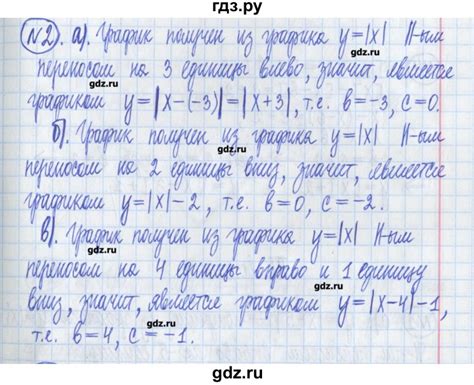 гдз.ру
№2. а). График получен из графика y=|x| II-ым
переносом на 3 единицы влево, значит, является
графиком y=|x-(-3)|=|x+3|, т.е. b=-3, c=0.
б). График получен из графика y=|x| II-ым
переносом на 2 единицы вниз, значит, является
графиком y=|x|-2, т.е. b=0, c=-2.
в). График получен из графика y=|x| II-ым
переносом на 4 единицы вправо и 1 единицу
вниз, значит, является графиком y=|x-4|-1,
т.е. b=4, c=-1.
gdz.ru
gdz.ru
gdz.ru
gdz.ru
gdz.ru
gdz.ru
gdz.ru
gdz.ru